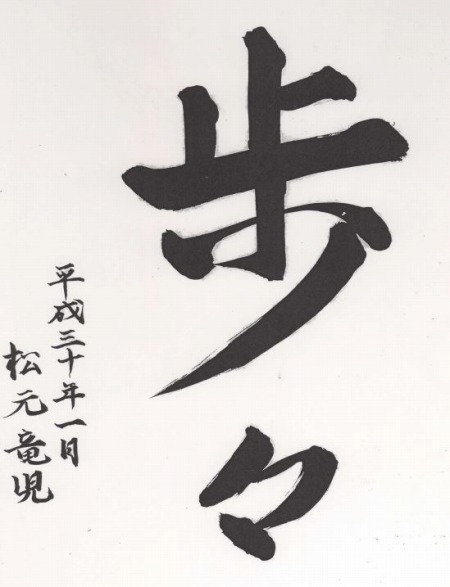 歩々
平成三十年一月
松元竜児